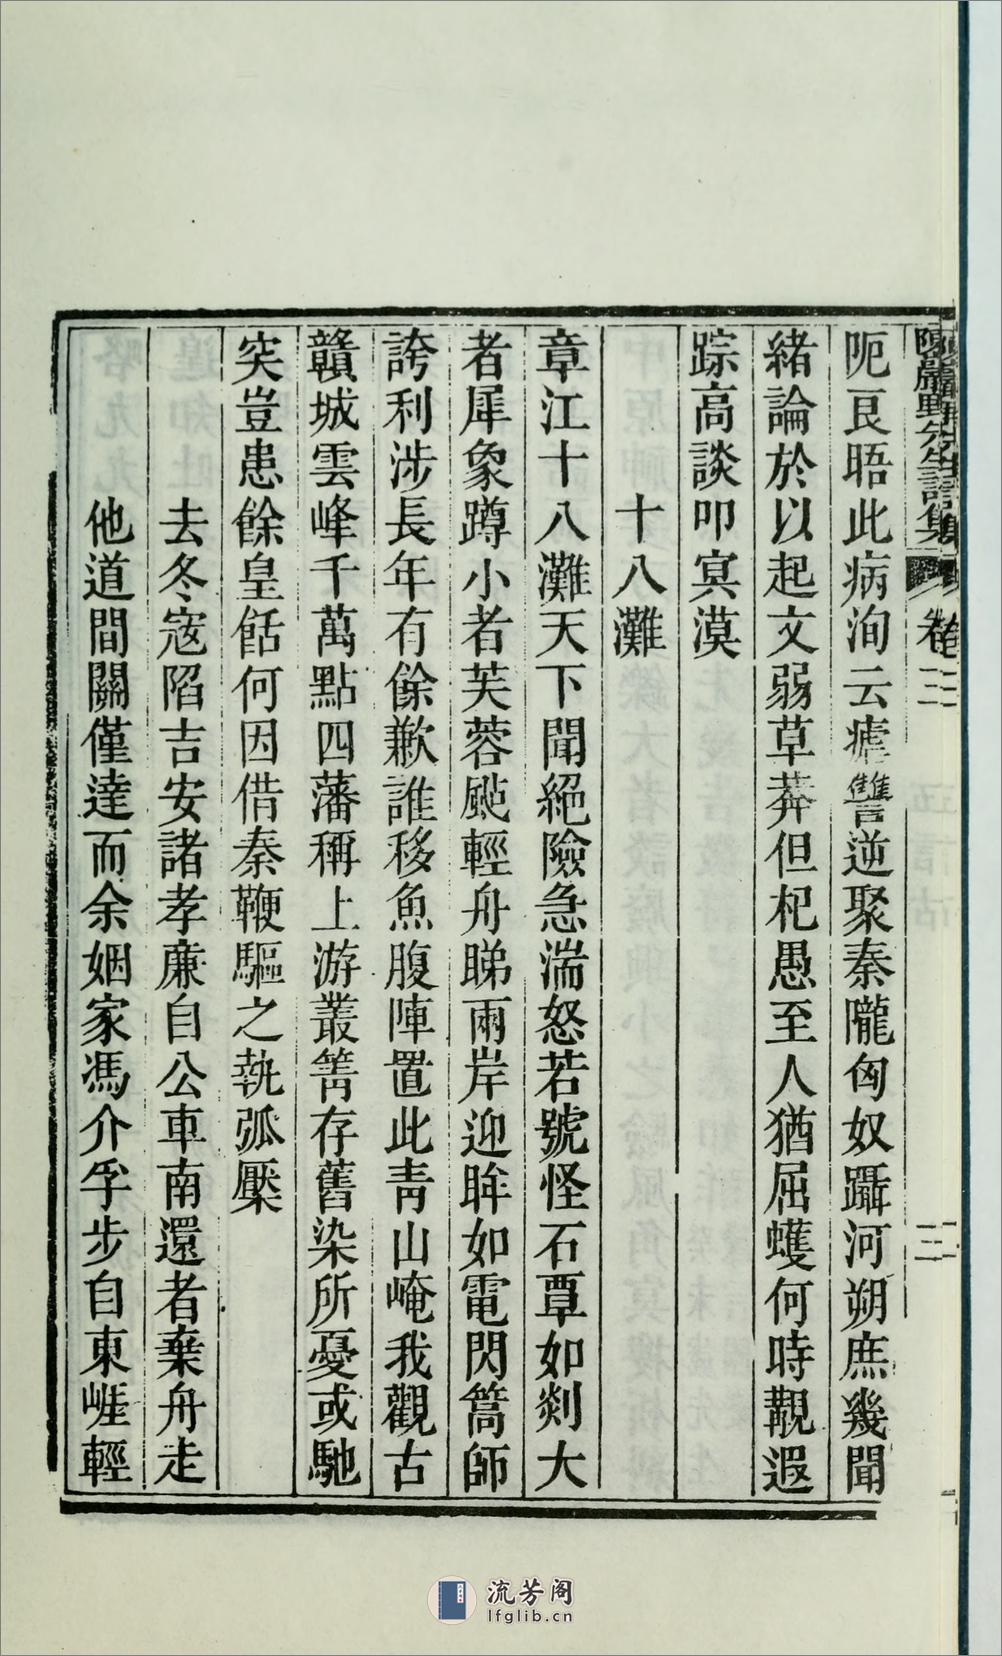 陳巖野先生詩集 卷二 三
阨良晤此病洵云瘧讐逆聚秦隴匈奴躡河朔庶幾聞
緒論於以起文弱草莽但杞愚至人猶屈蠖何時覯遐
踪高談叩寞漠
十八灘
章江十八灘天下聞絕險急湍怒若號怪石覃如剡大
者犀象蹲小者芙蓉颭輕舟睇兩岸迎眸如電閃篙師
誇利涉長年有餘歉誰移魚腹陣置此靑山崦我觀古
贛城雲峰千萬點四藩稱上游叢箐存舊染所憂或馳
突豈患餘皇餂何因借秦鞭驅之執弧檿
去冬寇陷吉安諸孝廉自公車南還者棄舟走
他道間關僅達而余姻家馮介孚步自東崕輕
流芳阁
lfglib.cn